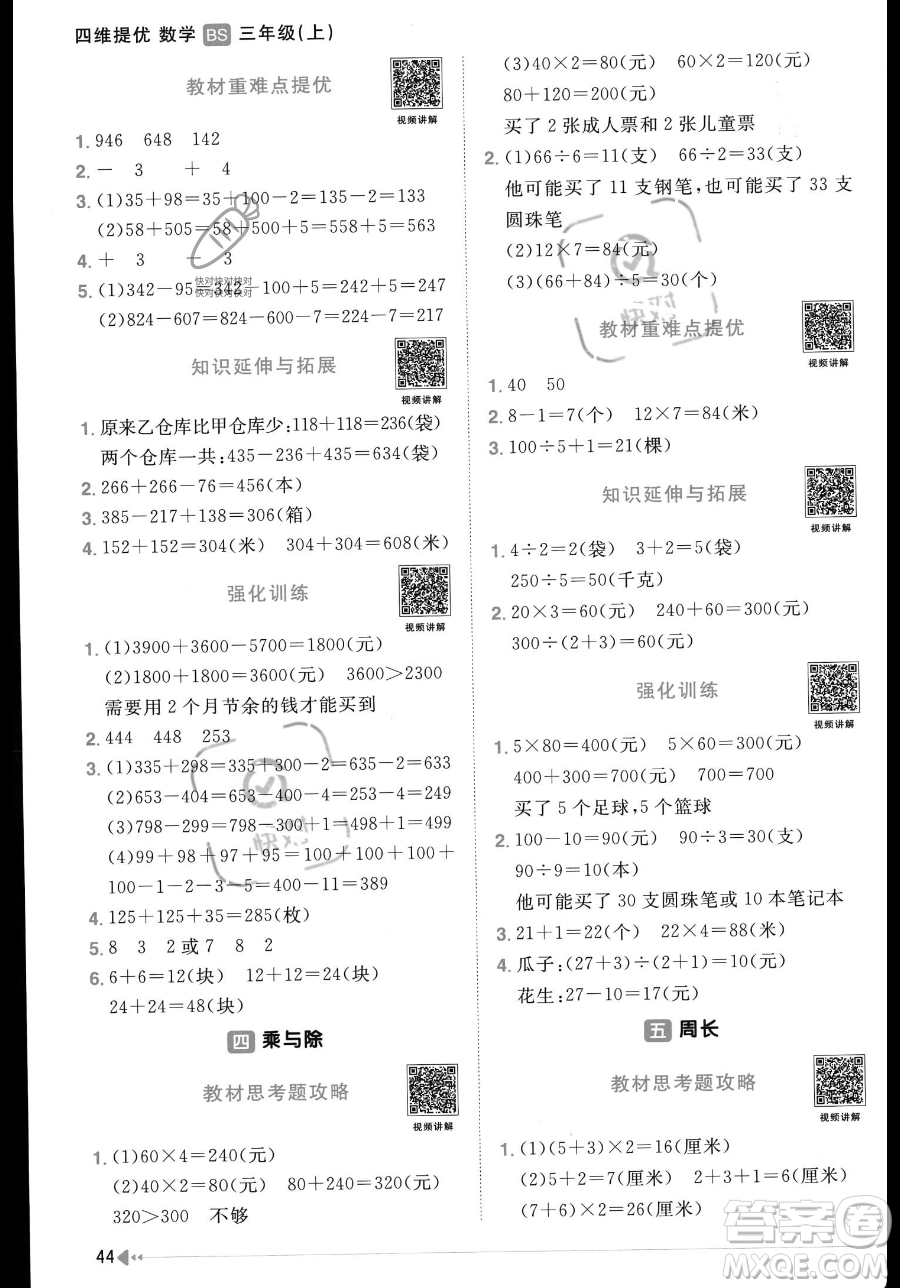 四维提优 数学 BS 三年级(上)
教材重难点提优
视频讲解
1. 946 648 142
2. － 3 ＋ 4
3. (1)35＋98＝35＋100－2＝135－2＝133
(2)58＋505＝58＋500＋5＝558＋5＝563
4. ＋ 3 － 3
5. (1)342－95＝342－100＋5＝242＋5＝247
快对快对快对
快对快对快对
(2)824－607＝824－600－7＝224－7＝217
知识延伸与拓展
视频讲解
1. 原来乙仓库比甲仓库少:118＋118＝236(袋)
两个仓库一共:435－236＋435＝634(袋)
2. 266＋266－76＝456(本)
3. 385－217＋138＝306(箱)
4. 152＋152＝304(米) 304＋304＝608(米)
强化训练
视频讲解
1. (1)3900＋3600－5700＝1800(元)
(2)1800＋1800＝3600(元) 3600＞2300
需要用 2 个月节余的钱才能买到
2. 444 448 253
3. (1)335＋298＝335＋300－2＝635－2＝633
(2)653－404＝653－400－4＝253－4＝249
(3)798－299＝798－300＋1＝498＋1＝499
(4)99＋98＋97＋95＝100＋100＋100＋
100－1－2－3－5＝400－11＝389
4. 125＋125＋35＝285(枚)
5. 8 3 2 或 7 8 2
6. 6＋6＝12(块) 12＋12＝24(块)
24＋24＝48(块)
四 乘与除
教材思考题攻略
视频讲解
1. (1)60×4＝240(元)
(2)40×2＝80(元) 80＋240＝320(元)
320＞300 不够
44
(3)40×2＝80(元) 60×2＝120(元)
80＋120＝200(元)
买了 2 张成人票和 2 张儿童票
2. (1)66÷6＝11(支) 66÷2＝33(支)
他可能买了 11 支钢笔,也可能买了 33 支
圆珠笔
(2)12×7＝84(元)
(3)(66＋84)÷5＝30(个)
教材重难点提优
视频讲解
1. 40 50
2. 8－1＝7(个) 12×7＝84(米)
3. 100÷5＋1＝21(棵)
知识延伸与拓展
视频讲解
1. 4÷2＝2(袋) 3＋2＝5(袋)
250÷5＝50(千克)
2. 20×3＝60(元) 60÷2＝30(元)
300÷(2＋3)＝60(元)
强化训练
视频讲解
1. 5×80＝400(元) 5×60＝300(元)
400＋300＝700(元) 700＝700
买了 5 个足球,5 个篮球
2. 100－10＝90(元) 90÷3＝30(支)
90÷9＝10(本)
他可能买了 30 支圆珠笔或 10 本笔记本
3. 21＋1＝22(个) 22×4＝88(米)
4. 瓜子:(27＋3)÷(2＋1)＝10(元)
花生:27－10＝17(元)
五 周长
教材思考题攻略
视频讲解
1. (1)(5＋3)×2＝16(厘米)
(2)5＋2＝7(厘米) 2＋3＋1＝6(厘米)
(7＋6)×2＝26(厘米)
答案卷